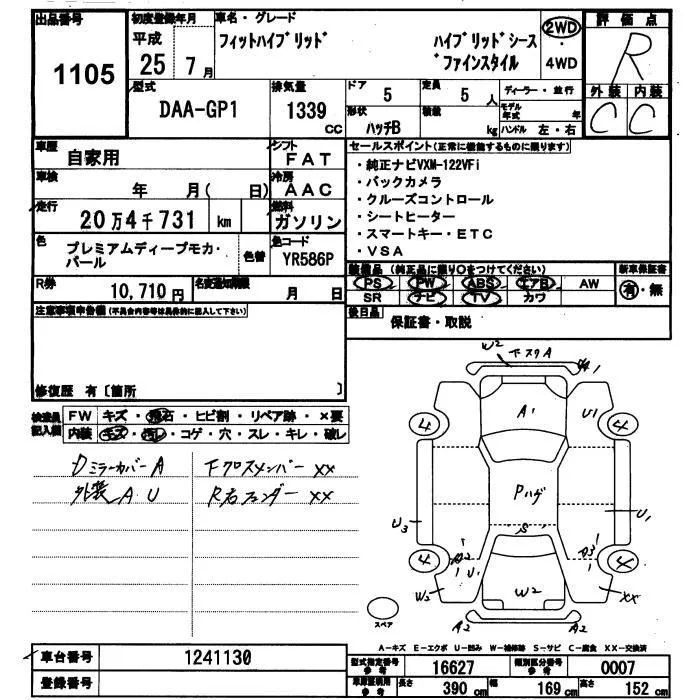 出品番号
1105
初度登録年月
平成
25 7 月
車名・グレード
フィットハイブリッド
ハイブリッドシース
ファインスタイル
2WD
・
4WD
評価点
R
外装 内装
C C
型式
DAA-GP1
排気量
1339
cc
ドア
5
定員
5 人
形状
ハッチB
積載
kg
ディーラー・並行
モデル年式 年
ハンドル 左・右
車歴
自家用
シフト
FAT
車検
年 月( 日)
冷房
AAC
走行
20万4千731 km
燃料
ガソリン
色
プレミアムディープモカ・
パール
色替
色コード
YR586P
R券
10,710 円
名変通知期限
月 日
セールスポイント(正常に機能するものに限ります)
・純正ナビVXM-122VFi
・バックカメラ
・クルーズコントロール
・シートヒーター
・スマートキー・ETC
・VSA
装備品 (純正品に限り○をつけてください)
PS PW ABS エアB AW
SR ナビ TV カワ
新車保証書
有・無
後日品
保証書・取説
注意事項申告欄(不具合内容等は具体的に記入して下さい)
修復歴 有〔箇所 〕
検査員記入欄
FW キズ・飛石・ヒビ割・リペア跡・×要
内装 キズ・汚レ・コゲ・穴・スレ・キレ・破レ
Dミラーカバー A
外装 A U
Fクロスメンバー XX
R右フェンダー XX
W2 下スリA
A1
A1
U1
4 4
Pハゲ
U3
U1
S
A2
U1
A3
4 4
W2
W2
XX
A2 A2
スペア
A-キズ E-エクボ U-凹み W-補修跡 S-サビ C-腐食 XX-交換済
車台番号
1241130
登録番号
型式指定番号
参考
16627
類別区分番号
参考
0007
車庫証明用
参考
長さ
390 cm
幅
169 cm
高さ
152 cm